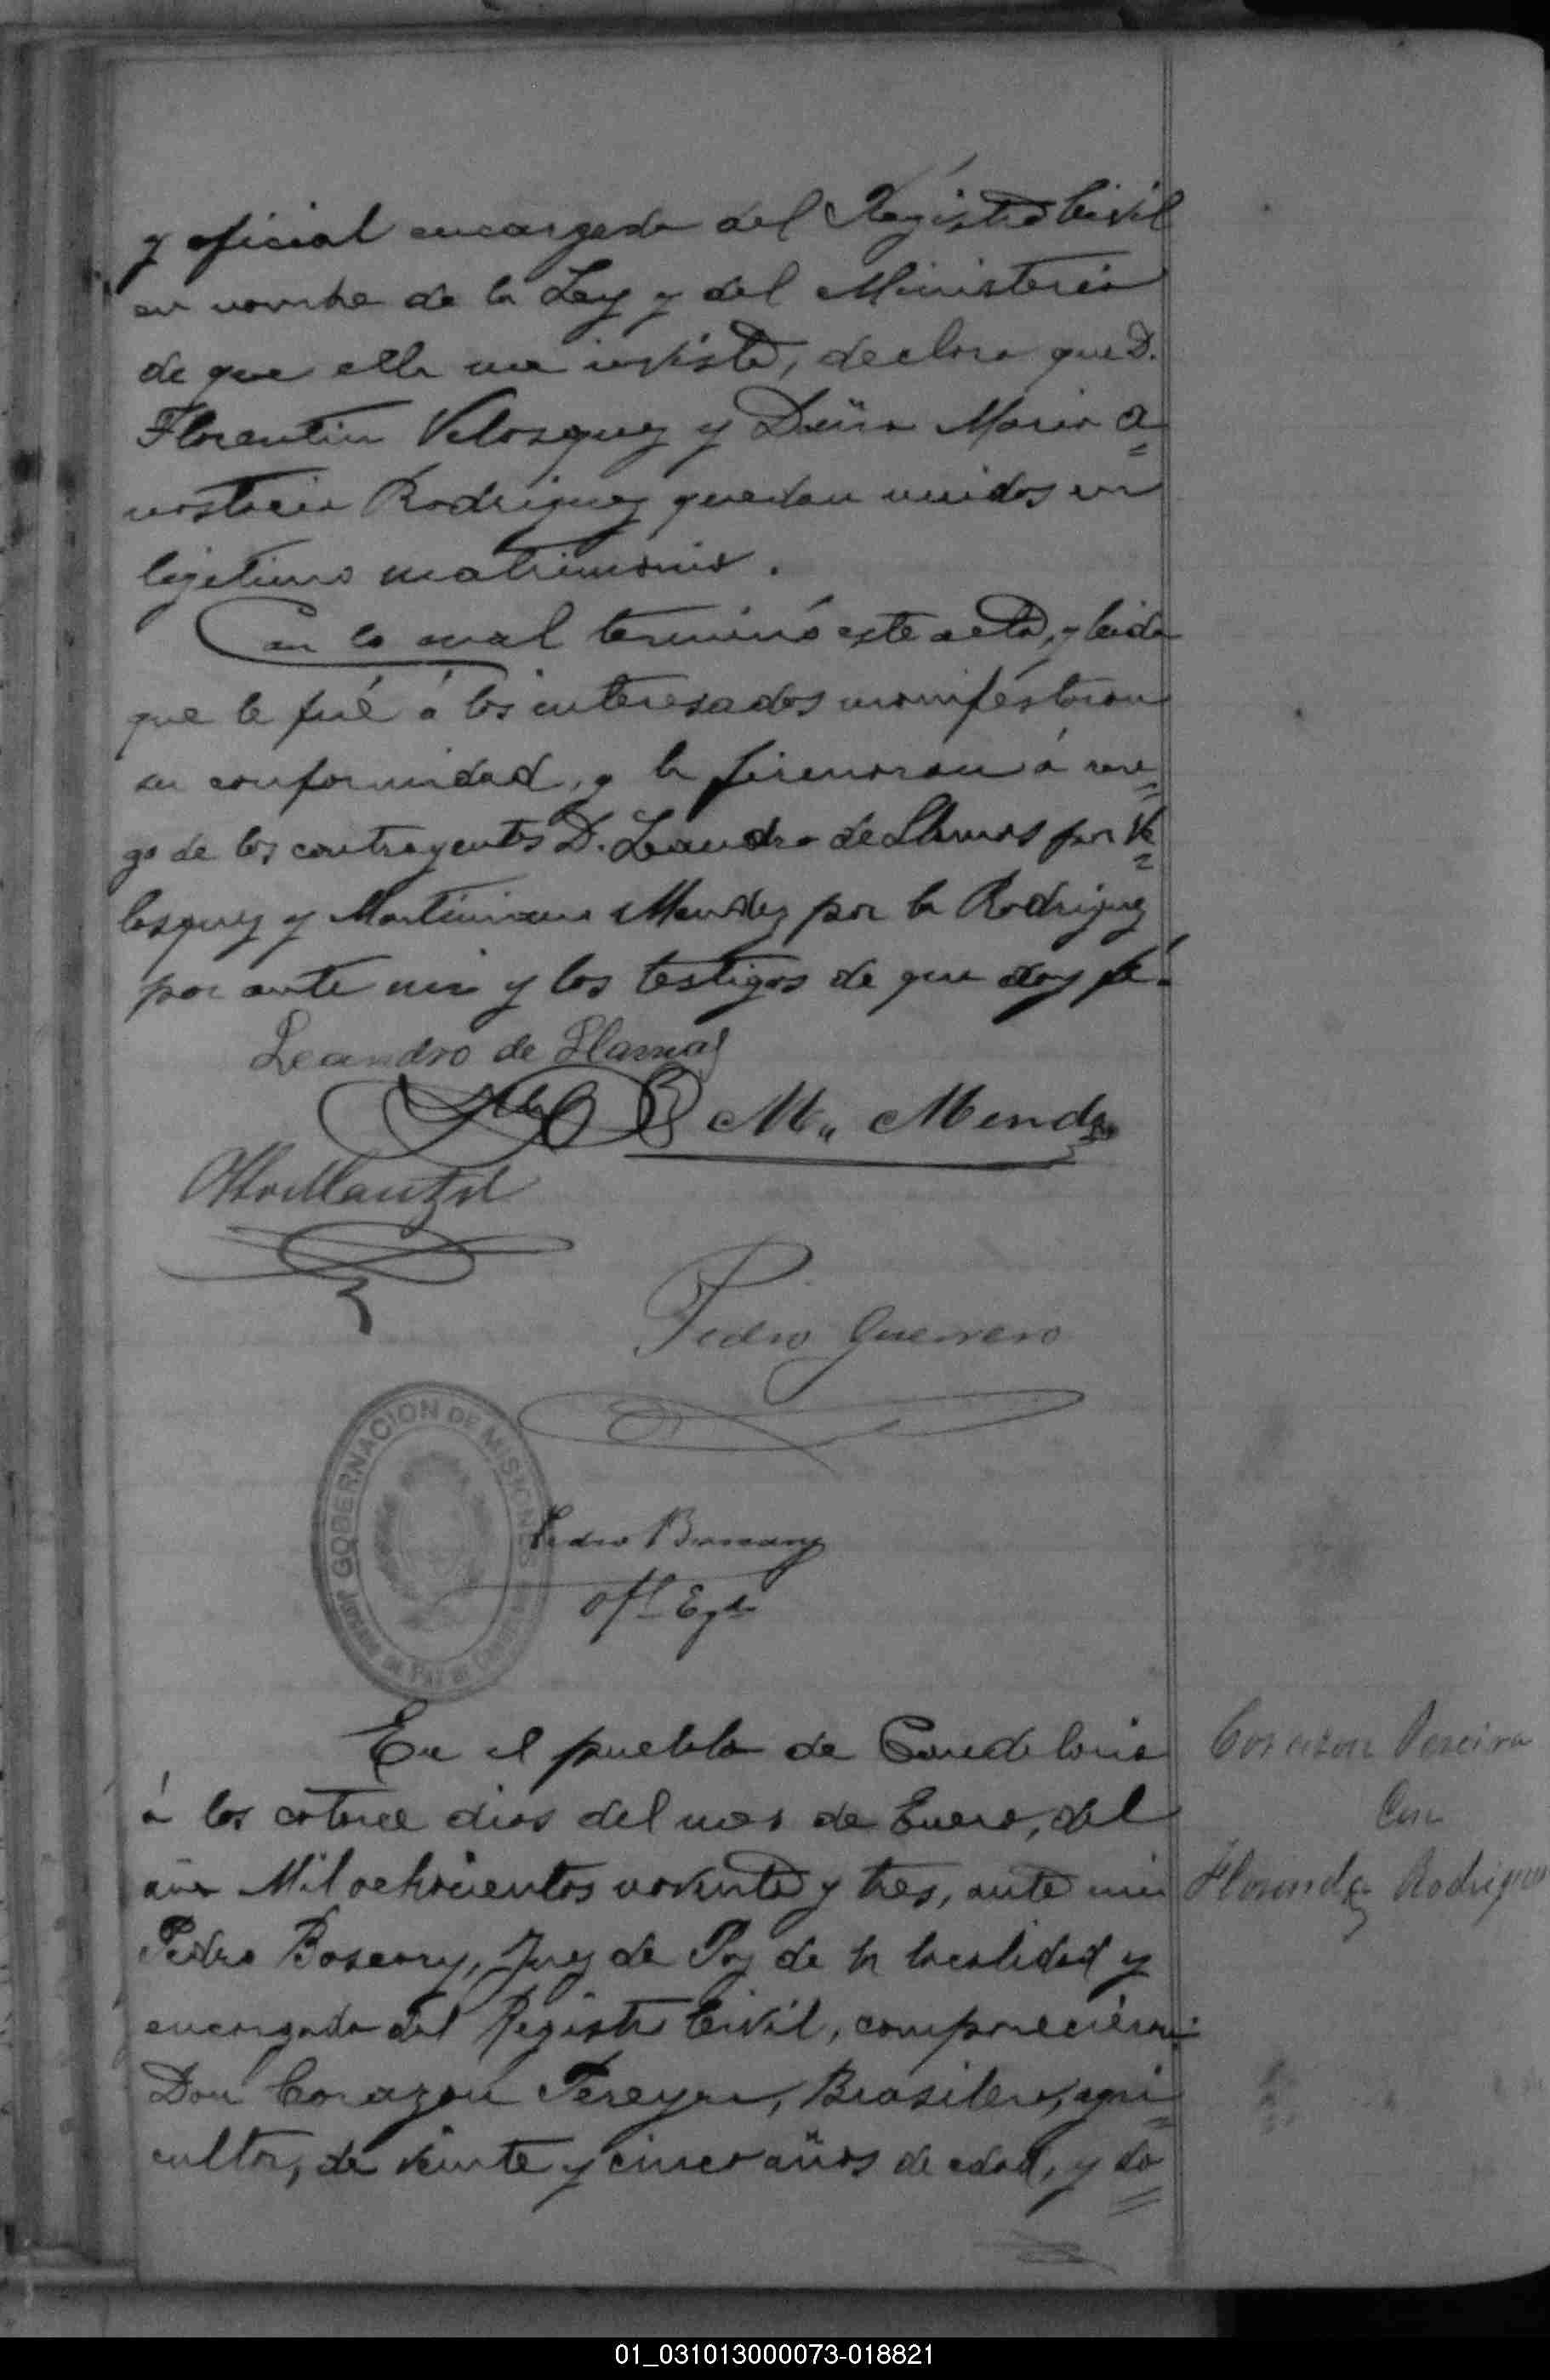 y oficial encargado del Registro Civil
en nombre de la Ley y del Ministerio
de que ella me inviste, declaro que D.
Florentin Velasquez y Doña Maria A=
nastacia Rodriguez quedan unidos en
legitimo matrimonio.
Con lo cual terminó este acto, y leida
que le fué á los interesados manifestaron
su conformidad, y la firmaron á rue=
go de los contrayentes D. Leandro de Llamas por Ve=
lasquez y Martiniano Mendez por la Rodriguez
por ante mi y los testigos de que doy fé.
Leandro de Llamas
M,, Mendez
Pedro Guerrero
GOBERNACION DE MISIONES
Pedro
Ofl Egdo
En el pueblo de Candelaria
á los catorce dias del mes de Enero, del
año Mil ochocientos noventa y tres, ante mi
Pedro Juez de Paz de la localidad y
encargado del Registro Civil, comparecieron:
Don Corazon Pereyra, Brasilero, agri=
cultor, de veinte y cinco años de edad, y do=
Corazon Pereira
Con
Rodriguez
01_031013000073-018821